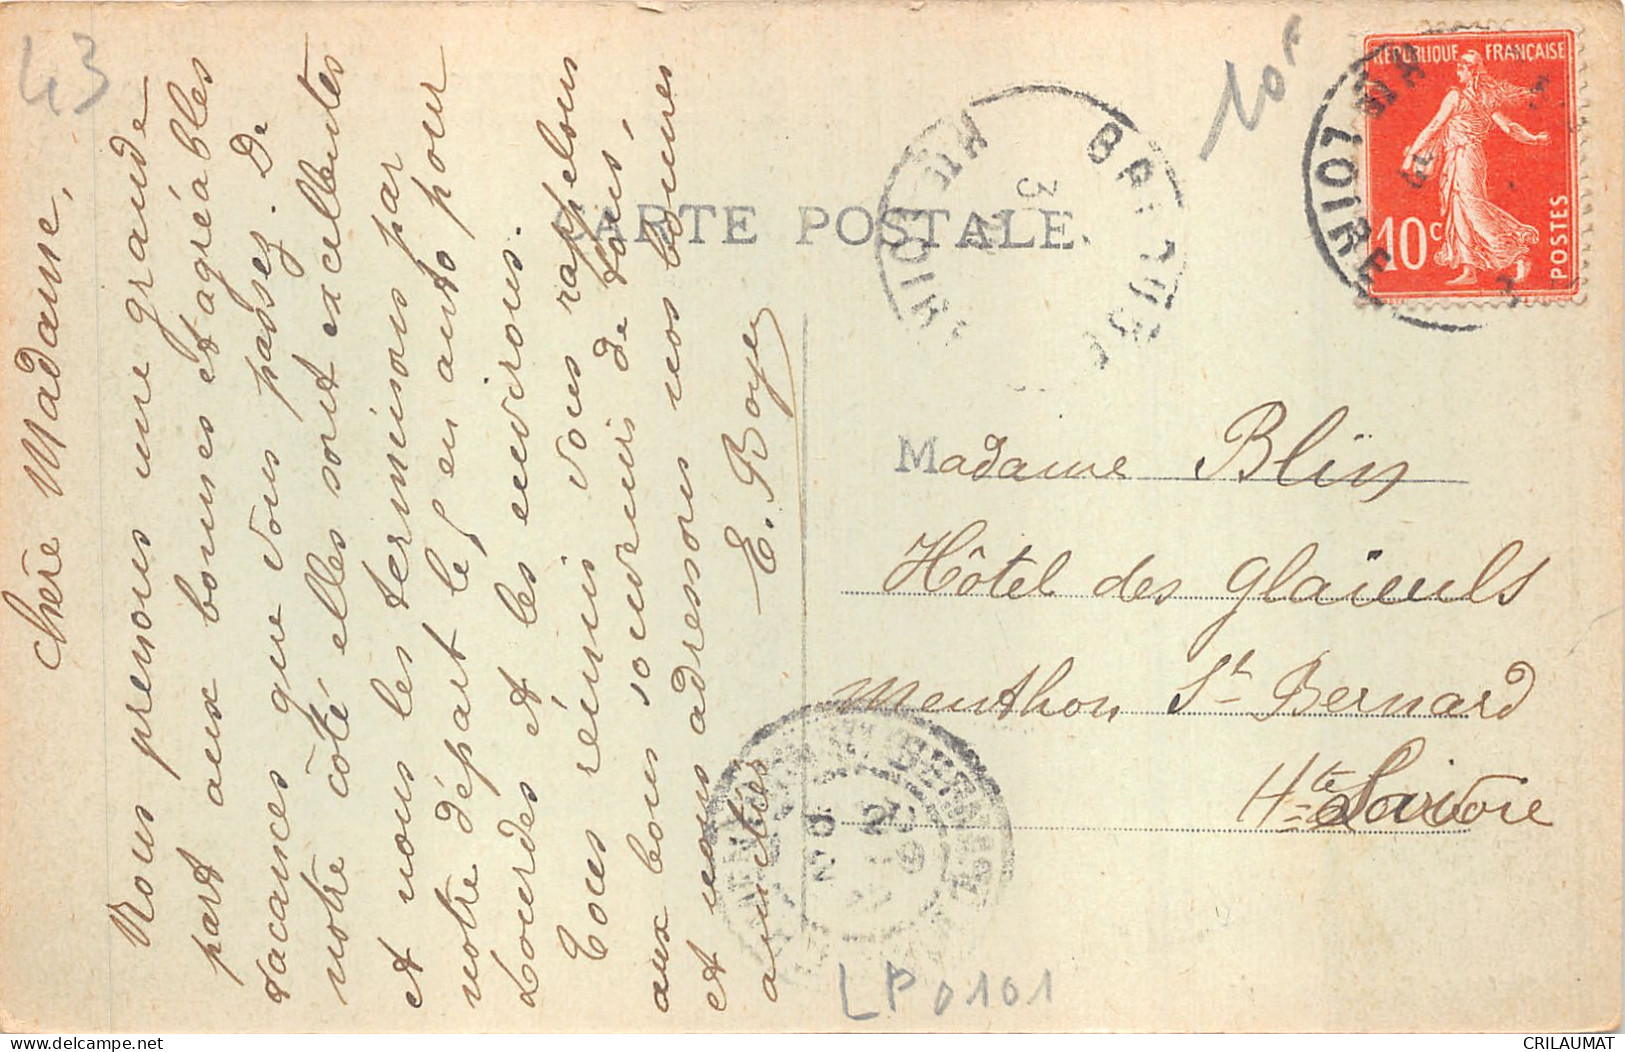 43
10F
RÉPUBLIQUE FRANÇAISE
10c
POSTES
CARTE POSTALE
Chère Madame,
Nous prenons une grande
part aux bonnes et agréables
vacances que vous passez. De
notre côté elles sont excellentes
et nous les terminons par
notre départ le 5 en auto pour
Lourdes et les environs.
Tous réunis vous rappelons
aux bons souvenirs de tous,
et vous adressons nos bonnes
amitiés
E. Boyer
Madame Blin
Hôtel des Glaïeuls
Menthon St Bernard
Hte Savoie
HTE LOIRE
LP0101
CRILAUMAT